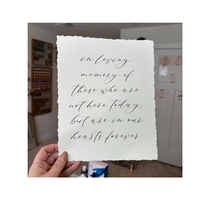 in loving
memory of
those who are
not here today,
but are in our
hearts forever